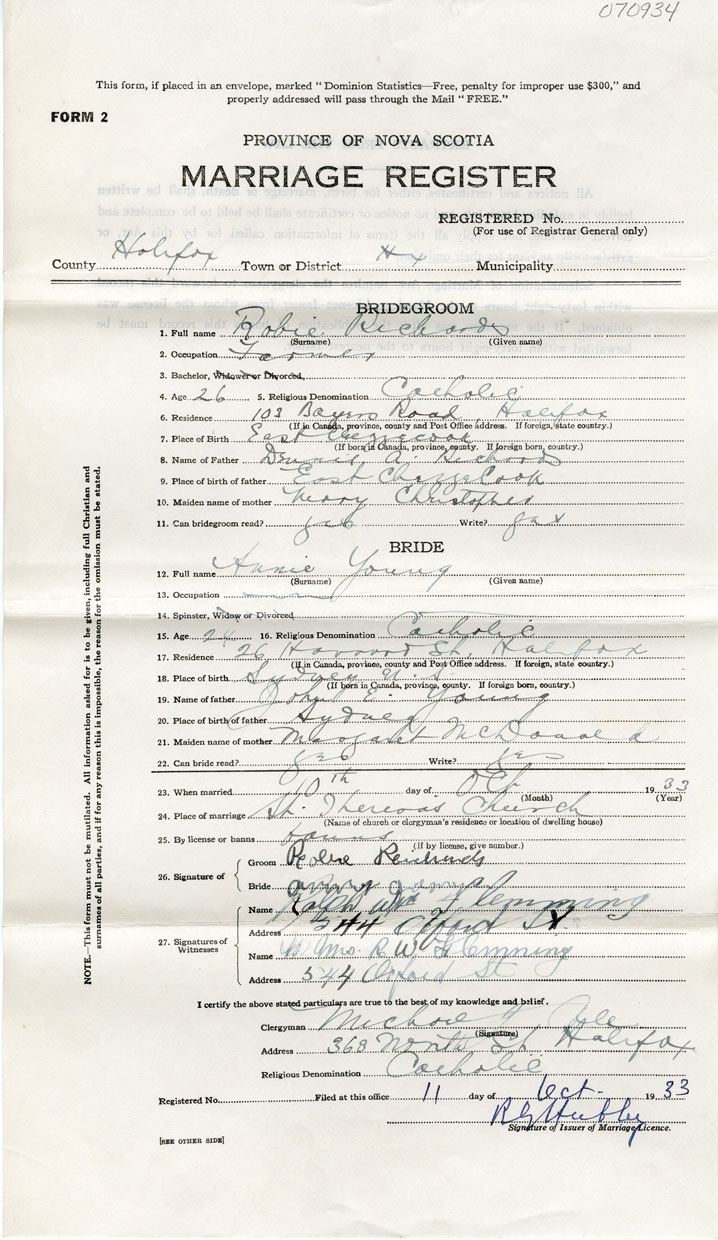 070934
This form, if placed in an envelope, marked "Dominion Statistics—Free, penalty for improper use $300," and
properly addressed will pass through the Mail "FREE."
FORM 2
PROVINCE OF NOVA SCOTIA
MARRIAGE REGISTER
REGISTERED No.
(For use of Registrar General only)
County Halifax Town or District Hx Municipality
BRIDEGROOM
1. Full name Robie Richards
(Surname) (Given name)
2. Occupation Farmer
3. Bachelor, Widower or Divorced
4. Age 26 5. Religious Denomination Catholic
6. Residence 103 Bayers Road, Halifax
(If in Canada, province, county and Post Office address. If foreign, state country.)
7. Place of Birth East Chezzetcook
(If born in Canada, province, county. If foreign born, country.)
8. Name of Father Dennis A. Richards
9. Place of birth of father East Chezzetcook
10. Maiden name of mother Mary Christopher
11. Can bridegroom read? yes Write? yes
BRIDE
12. Full name Annie Young
(Surname) (Given name)
13. Occupation
14. Spinster, Widow or Divorced
15. Age 24 16. Religious Denomination Catholic
17. Residence 26 St, Halifax
(If in Canada, province, county and Post Office address. If foreign, state country.)
18. Place of birth Sydney N.S.
(If born in Canada, province, county. If foreign born, country.)
19. Name of father John E. Young
20. Place of birth of father Sydney
21. Maiden name of mother Margaret McDonald
22. Can bride read? yes Write? yes
23. When married 10th day of Oct 1933
(Month) (Year)
24. Place of marriage St. Theresas Church
(Name of church or clergyman's residence or location of dwelling house)
25. By license or banns banns
(If by license, give number.)
26. Signature of Groom Robie Richards
Bride
27. Signatures of Witnesses
Name Ralph Wm Flemming
Address 544 Oxford St.
Name Mrs. R W Flemming
Address 544 Oxford St
I certify the above stated particulars are true to the best of my knowledge and belief.
Clergyman Michael
(Signature)
Address 368 North St Halifax
Religious Denomination Catholic
Registered No. Filed at this office 11 day of Oct. 1933
Signature of Issuer of Marriage Licence.
[SEE OTHER SIDE]
NOTE.—This form must not be mutilated. All information asked for is to be given, including full Christian and
surnames of all parties, and if for any reason this is impossible, the reason for the omission must be stated.